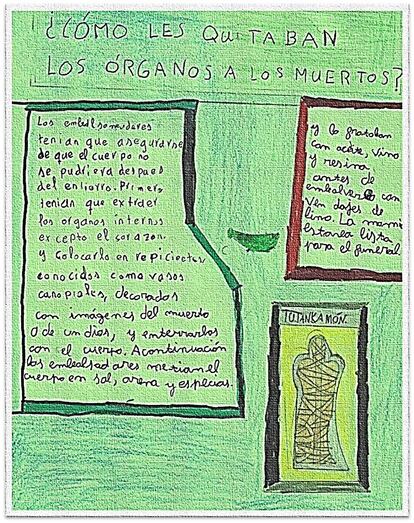 ¿CÓMO LES QUITABAN
LOS ÓRGANOS A LOS MUERTOS?
Los embalsamadores
tenian que asegurarse
de que el cuerpo no
se pudriera despues
del entierro. Primero
tenian que extraer
los organos internos
excepto el corazon
y colocarlo en recipientes
conocidos como vasos
canopiales, decorados
con imágenes del muerto
o de un dios, y enterrarlos
con el cuerpo. A continuación
los metian el
cuerpo en sal, arena y especias.
y lo frotaban
con aceite, vino
y resina
antes de
embolverlo con
ven dajes de
lino. La momia
estaria lista
para el funeral
TUTANKAMÓN.